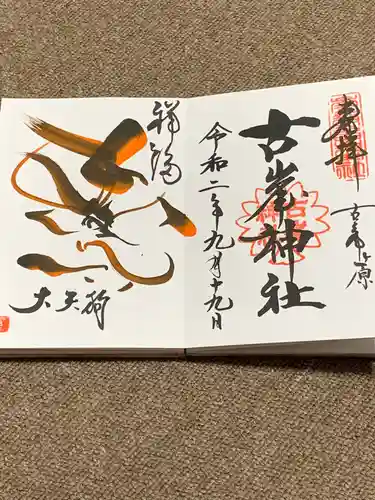 奉拝
古峯ヶ原
古峯神社
令和二年九月十九日
祥福
大天狗